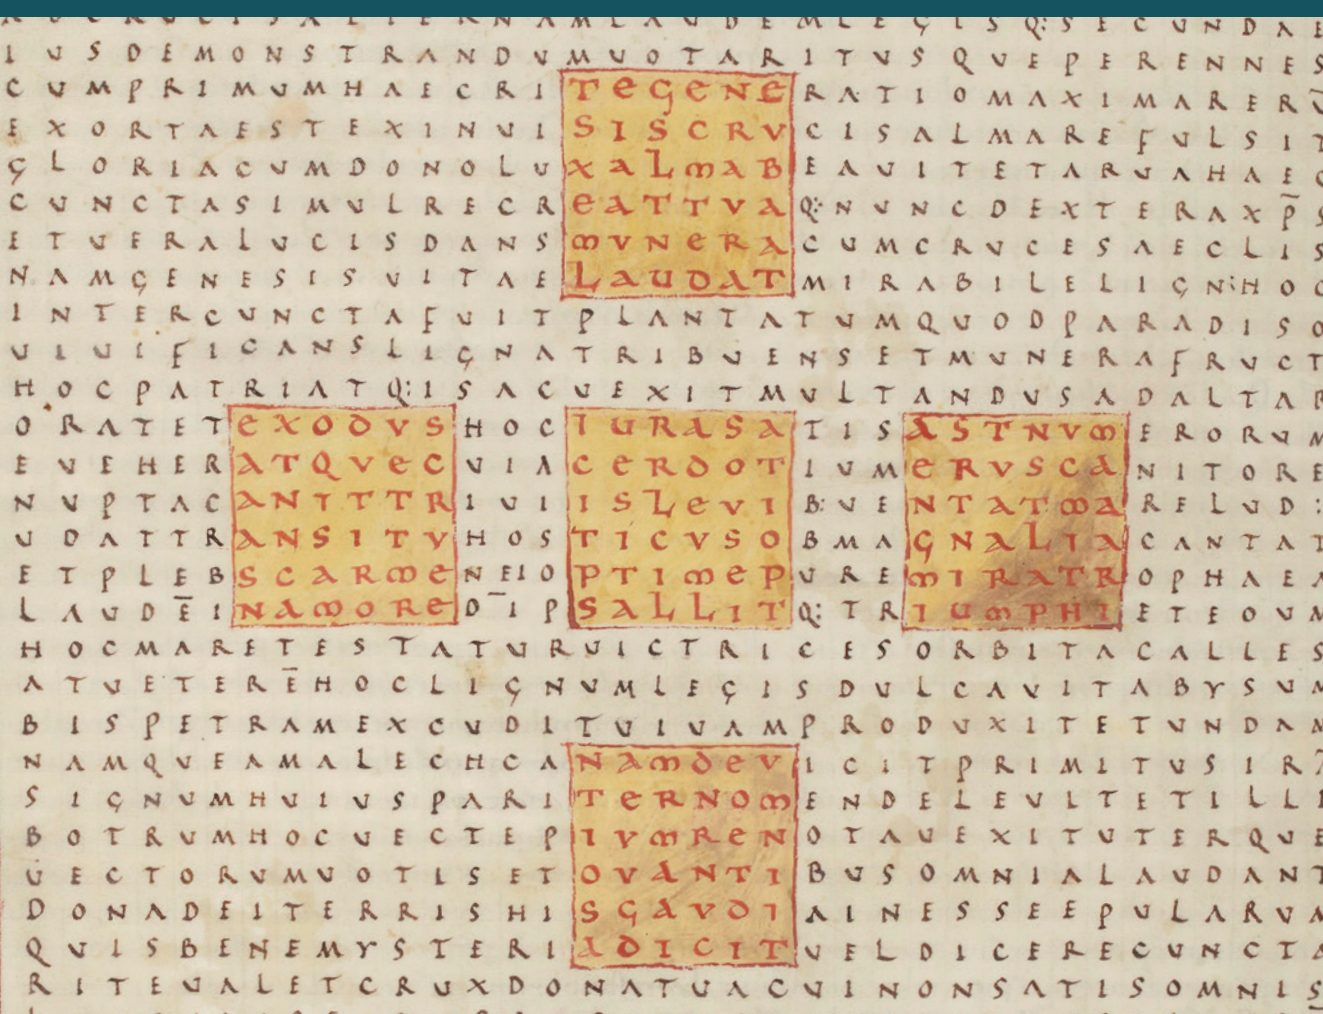 CRUCISALTERNAMLAUDEMLEGISQ:SECUNDAE
IUSDEMONSTRANDVMUOTARITVSQVEPERENNES
CUMPRIMUMHAECRITEGENERATIOMAXIMARERV̄
EXORTAESTEXINUISISCRVCISALMAREFULSIT
GLORIACUMDONOLUXALMABEAUITETARUAHAEC
CUNCTASIMULRECREATTVAQ:NUNCDEXTERAXP̄S
ETUERALUCISDANSMVNERACUMCRUCESAECLIS
NAMGENESISUITAELAUDATMIRABILELIGN:HOC
INTERCUNCTAFUITPLANTATUMQUODPARADISO
UIUIFICANSLIGNATRIBUENSETMUNERAFRUCT
HOCPATRIATQ:ISACUEXITMULTANDUSADALTAR
ORATETEXODVSHOCIURASATISASTNVMERORUM
EUEHERATQVECUIACERDOTIUMERVSCANITORE
NUPTACANITTRIUIISLEVIB:UENTATMARELUD:
UDATTRANSITVHOSTICVSOBMAGNALIACANTAT
ETPLEBSCARMENEIOPTIMEPUREMIRATROPHAEA
LAUDĒINAMORED̄IPSALLITQ:TRIUMPHIETEOUM
HOCMARETESTATURUICTRICESORBITACALLES
ATUETERĒHOCLIGNUMLEGISDULCAUITABYSUM
BISPETRAMEXCUDITUIUAMPRODUXITETUNDAM
NAMQVEAMALECHCANAMDEVICITPRIMITUSIR
SIGNUMHUIUSPARITERNOMENDELEUITETILLI
BOTRUMHOCUECTEPIVMRENOTAUEXITUTERQUE
UECTORUMUOTISETOVANTIBUSOMNIALAUDANT
DONADEITERRISHISGAVDIAINESSEEPULARUM
QUISBENEMYSTERIADICITUELDICERECUNCTA
RITEUALETCRUXDONATUACUINONSATISOMNIS